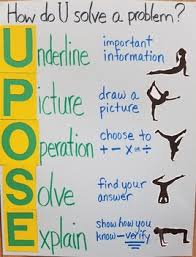 How do U solve a problem?
Underline important information
Picture draw a picture
Operation choose to + − × ÷
Solve find your answer
Explain show how you know—verify